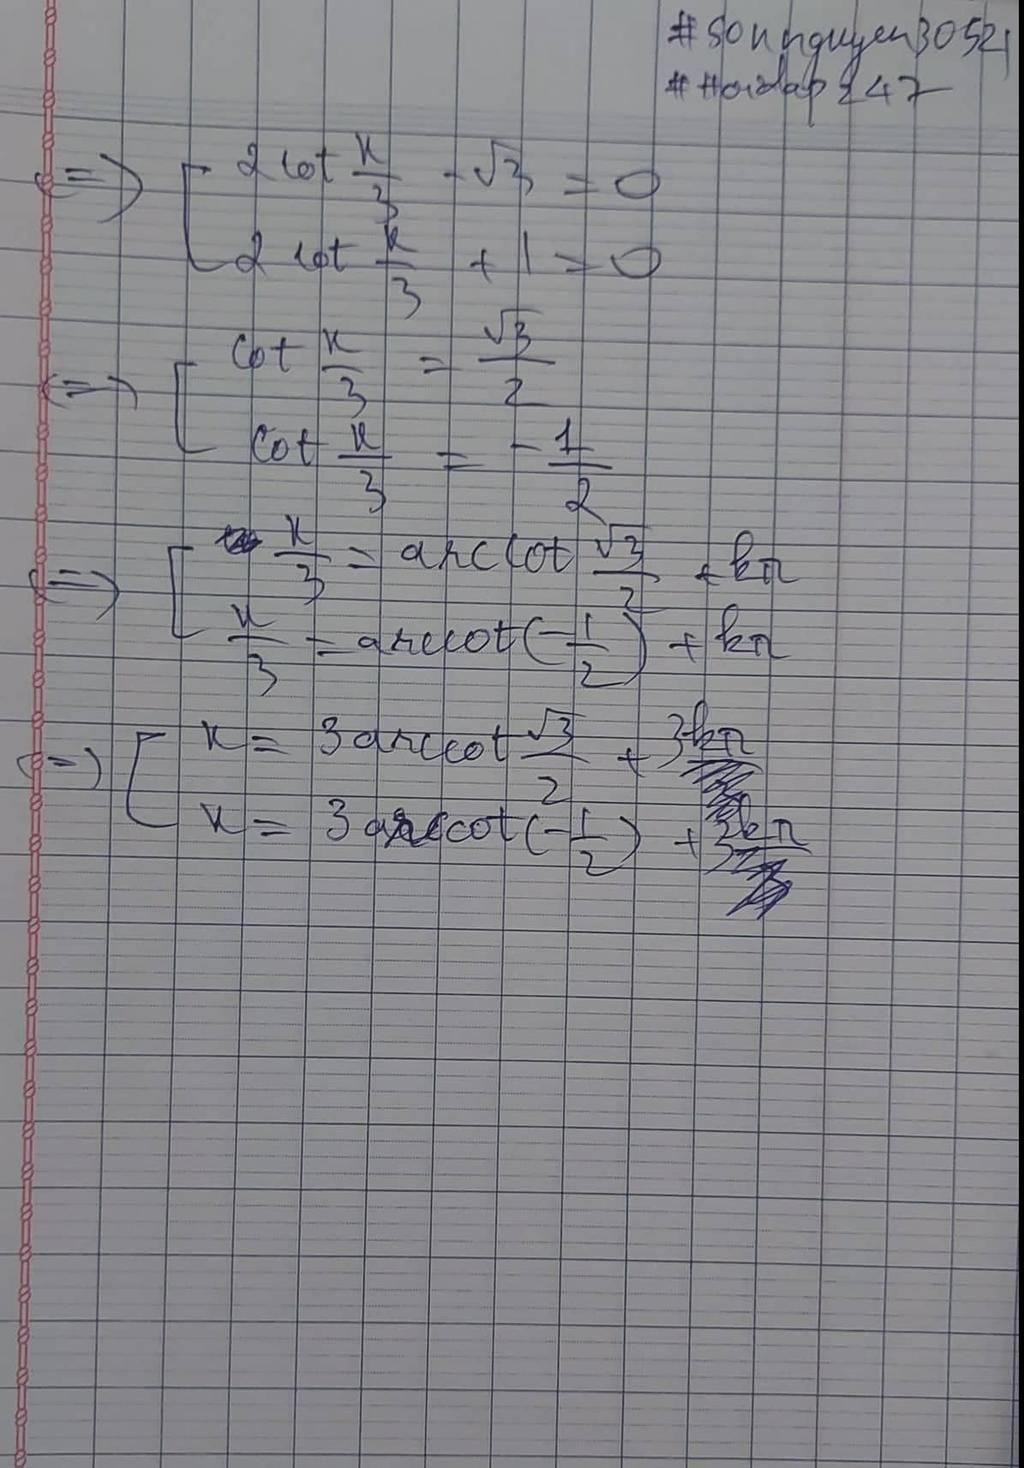 #sonnguyen30521
#Hoidap247
<=> [ 2 cot x/3 - √3 = 0
2 cot x/3 + 1 = 0
<=> [ cot x/3 = √3/2
cot x/3 = - 1/2
<=> [ x/3 = arccot √3/2 + kπ
x/3 = arccot (-1/2) + kπ
<=> [ x = 3 arccot √3/2 + 3kπ
x = 3 arccot (-1/2) + 3kπ